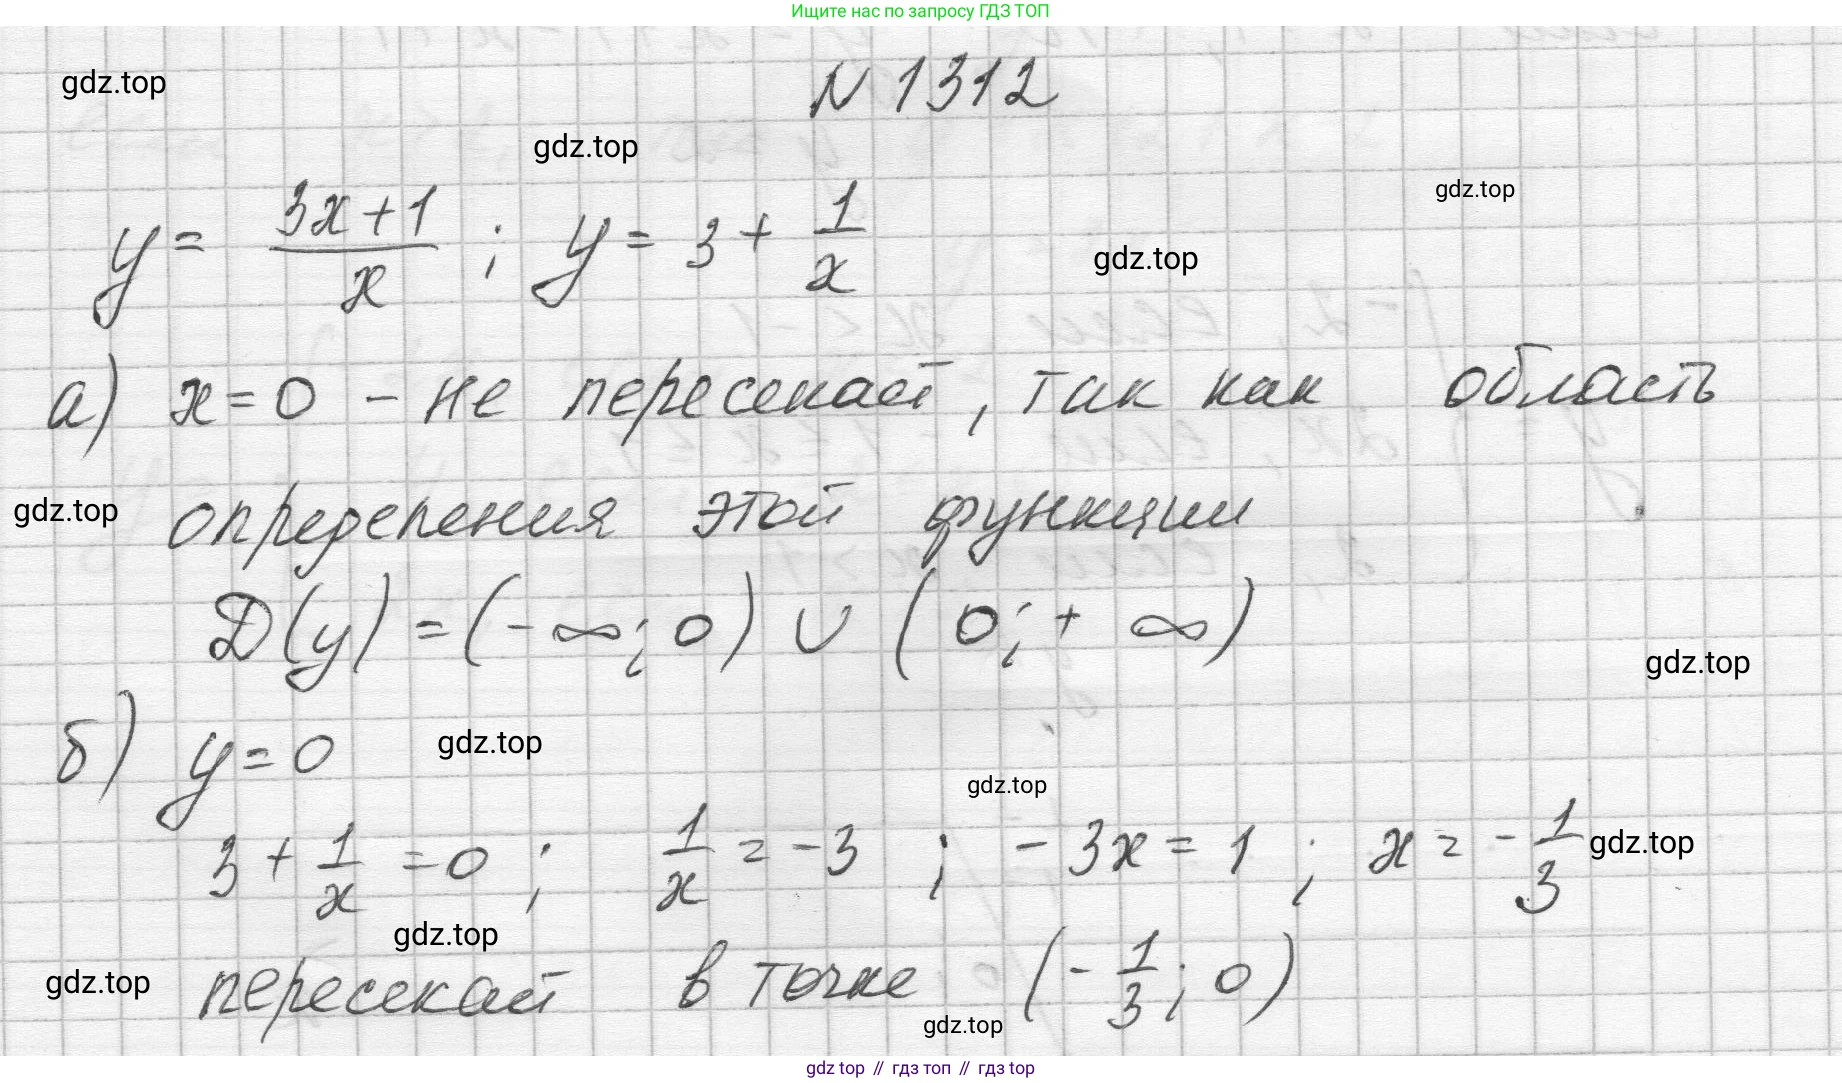 Ищите нас по запросу ГДЗ ТОП
gdz.top
N 1312
gdz.top
gdz.top
y = (3x+1)/x ; y = 3 + 1/x
gdz.top
а) x=0 - не пересекает, так как область
gdz.top
определения этой функции
D(y) = (-∞; 0) ∪ (0; + ∞)
gdz.top
б) y=0
gdz.top
gdz.top
3 + 1/x = 0 ; 1/x = -3 ; -3x = 1 ; x = -1/3
gdz.top
gdz.top
gdz.top
пересекает в точке (-1/3; 0)
gdz.top
gdz top // гдз топ // gdz top